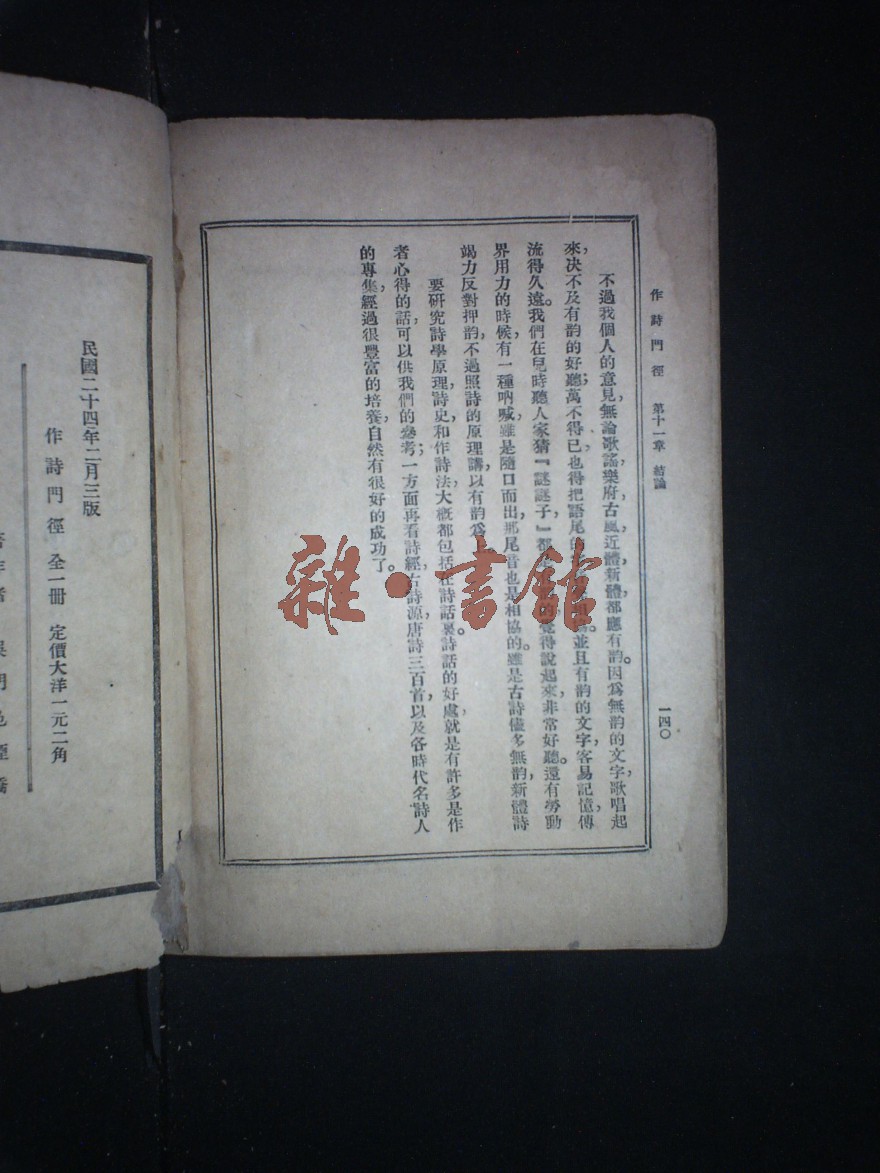 作詩門徑 第十一章 結論
一四〇
不過我個人的意見，無論歌謠，樂府，古風，近體，新體，都應有韵。因爲無韵的文字，歌唱起
來，決不及有韵的好聽；萬不得已，也得把語尾的 並且有韵的文字，容易記憶，傳
流得久遠。我們在兒時聽人家猜『謎謎子』，都 的，覺得說起來，非常好聽。還有勞動
界用力的時候，有一種吶喊，雖是隨口而出，那尾音也是相協的。雖是古詩儘多無韵，新體詩
竭力反對押韵，不過照詩的原理講，以有韵爲
要研究詩學原理，詩史和作詩法，大概都包括在詩話裏。詩話的好處，就是有許多是作
者心得的話，可以供我們的參考；一方面再看詩經，古詩源，唐詩三百首，以及各時代名詩人
的專集，經過很豐富的培養，自然有很好的成功了。
雜·書館
民國二十四年二月三版
作詩門徑 全一冊 定價大洋一元二角
著作者 吳門